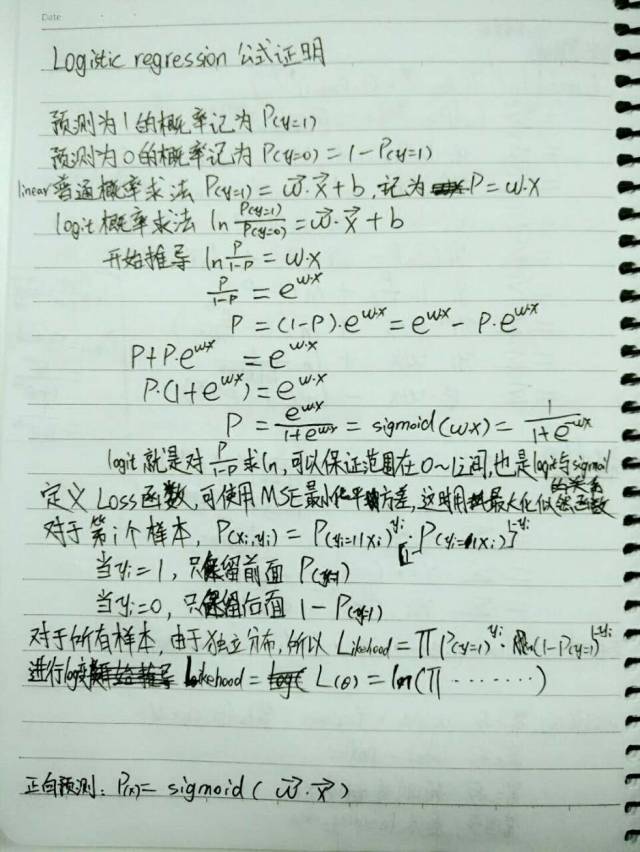 Date
Logistic regression 公式证明
预测为1的概率记为 P(y=1)
预测为0的概率记为 P(y=0) = 1 - P(y=1)
linear 普通概率求法 P(y=1) = w⃗·x⃗ + b, 记为 P = w·x
logit 概率求法 ln P(y=1)/P(y=0) = w⃗·x⃗ + b
开始推导 ln P/(1-P) = w·x
P/(1-P) = e^(w·x)
P = (1-P)·e^(w·x) = e^(w·x) - P·e^(w·x)
P + P·e^(w·x) = e^(w·x)
P·(1+e^(w·x)) = e^(w·x)
P = e^(w·x)/(1+e^(w·x)) = sigmoid(wx) = 1/(1+e^(-wx))
logit 就是对 P/(1-P) 求ln, 可以保证范围在0~1之间, 也是logit与sigmoid的关系
定义 Loss函数, 可使用MSE最小化平方差, 这时用最大化似然函数
对于第i个样本, P(xi, yi) = P(yi=1|xi)^yi · [1-P(yi=1|xi)]^(1-yi)
当yi=1, 只保留前面 P(y=1)
当yi=0, 只保留后面 1 - P(y=1)
对于所有样本, 由于独立分布, 所以 Likehood = ∏ P(y=1)^yi · (1-P(y=1))^(1-yi)
进行log Likehood = L(θ) = ln(∏ ·······)
正向预测: P(x) = sigmoid( w⃗·x⃗ )